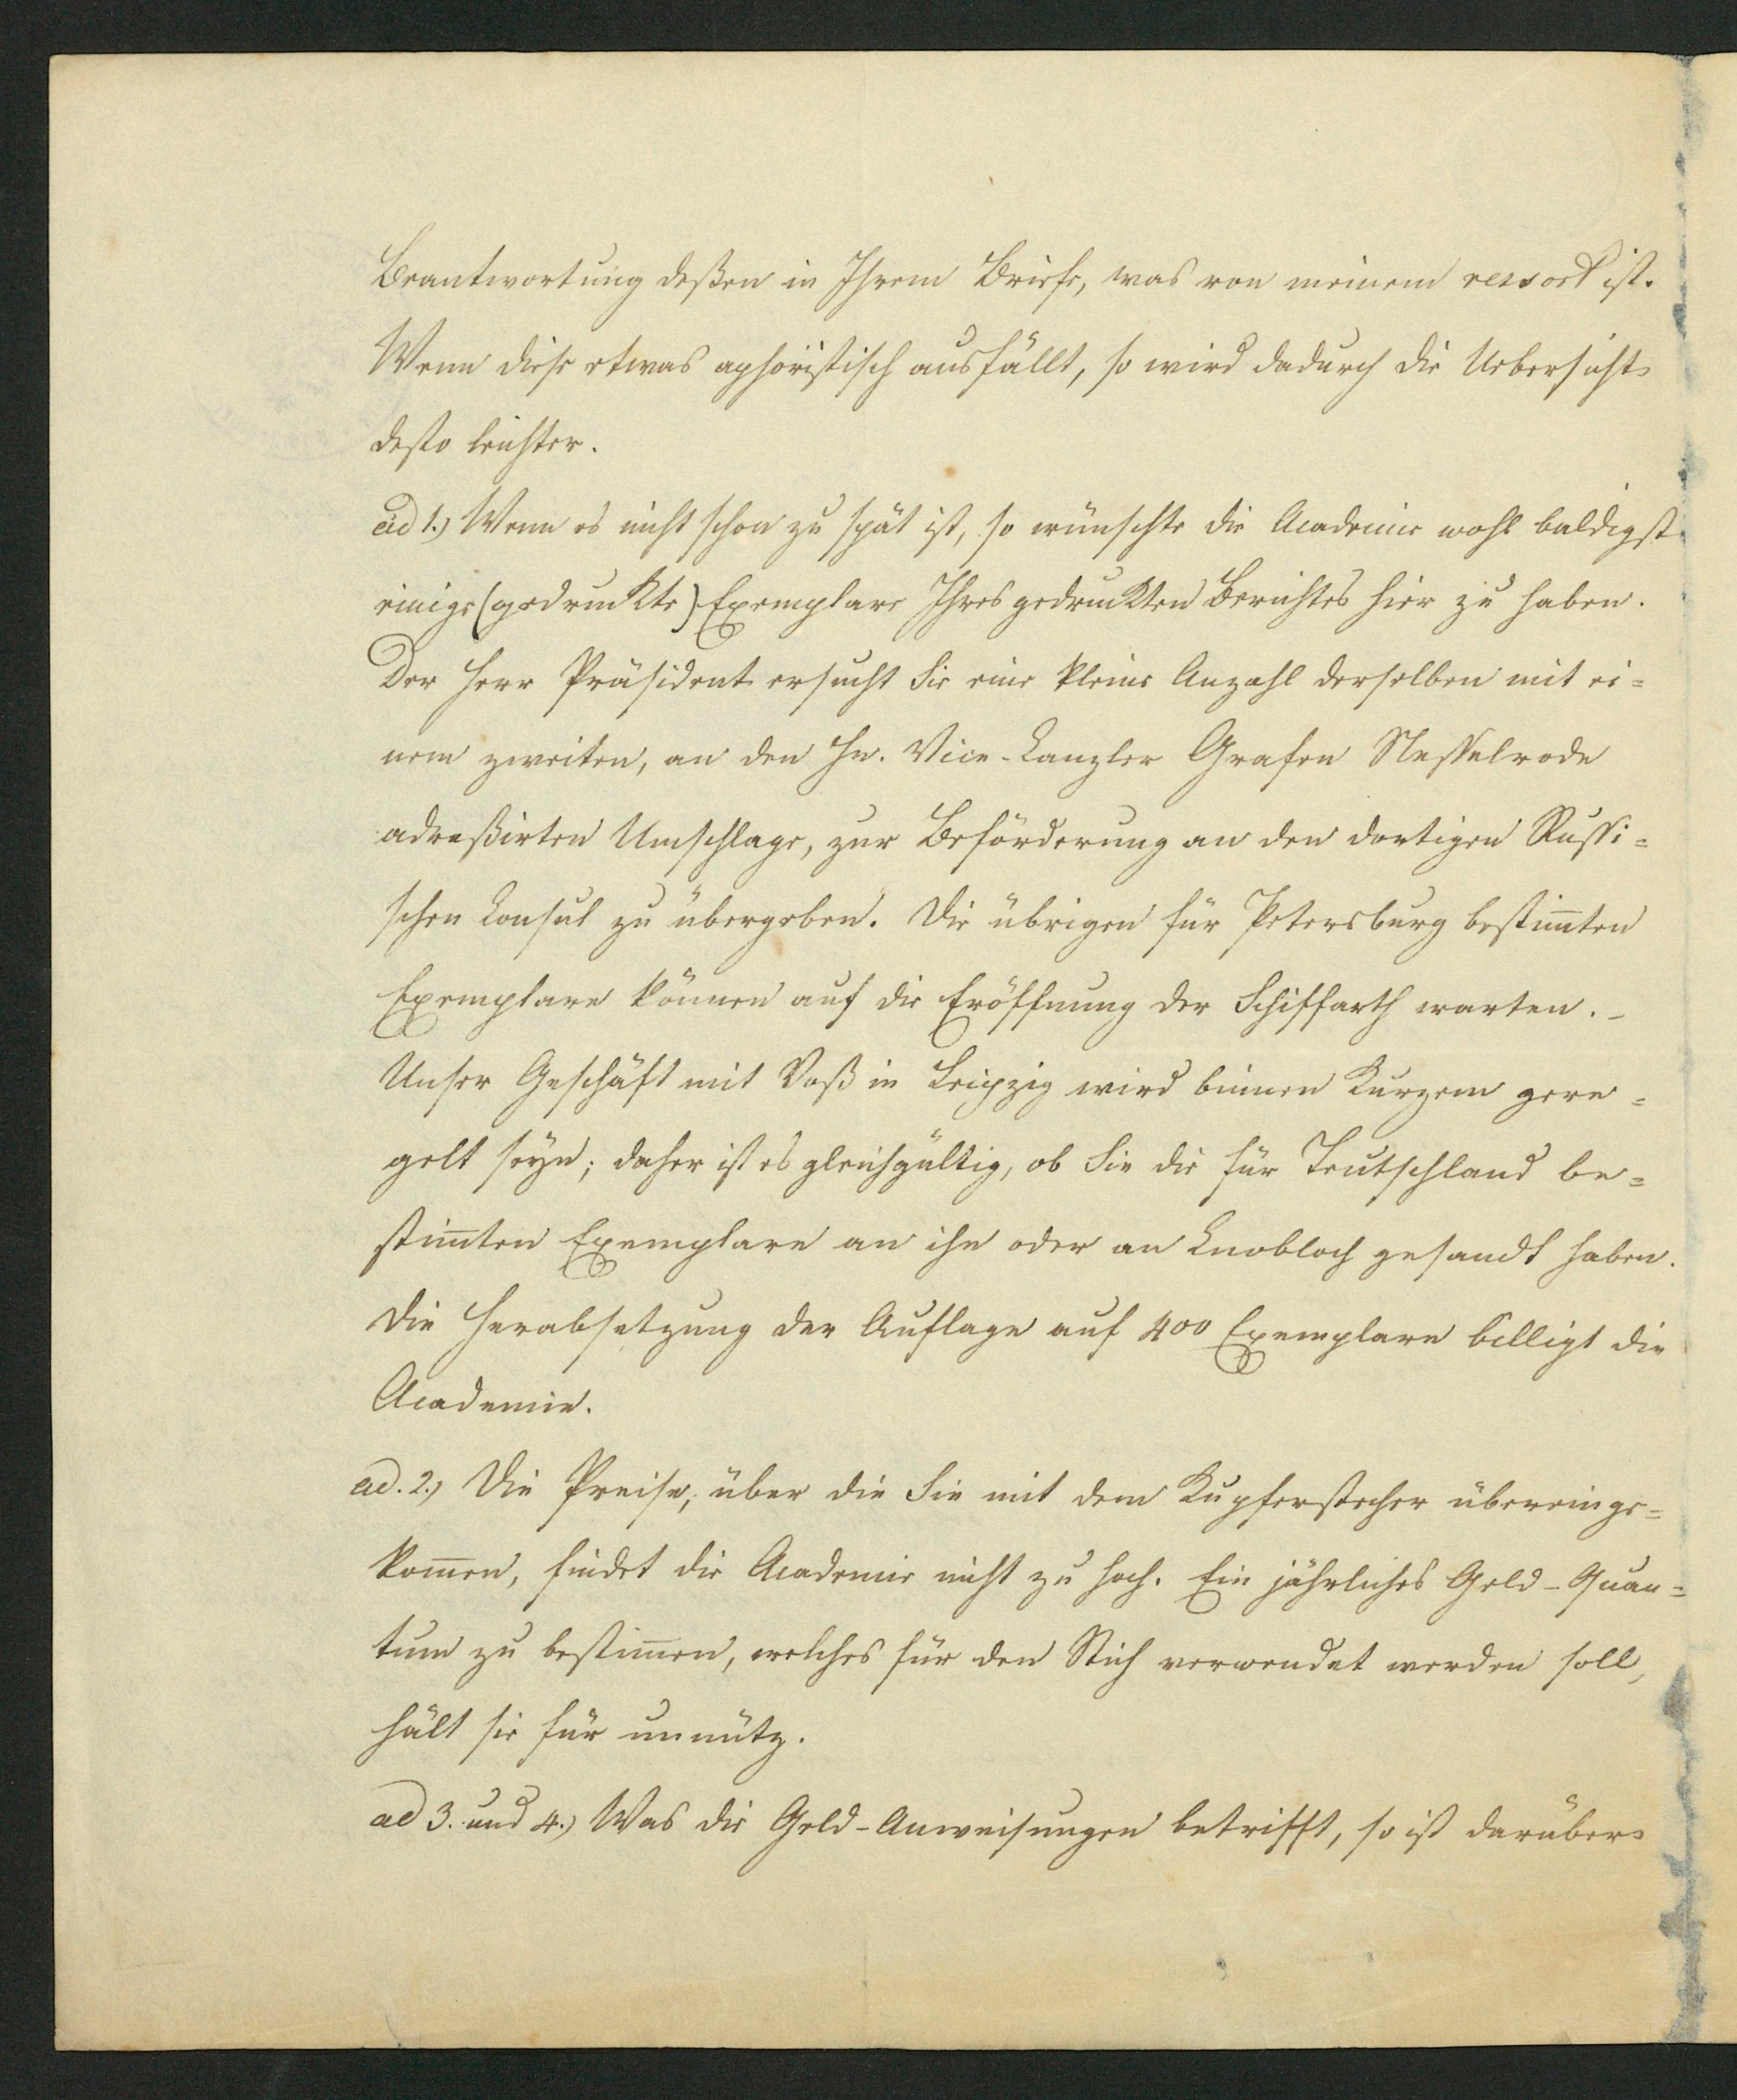 Beantwortung deßen in Ihrem Briefe, was von meinem ressort ist.
Wenn diese etwas aphoristisch ausfällt, so wird dadurch die Uebersicht
desto leichter.
ad 1.) Wenn es nicht schon zu spät ist, so wünschte die Academie wohl baldigst
einige (gedruckte) Exemplare Ihres gedruckten Berichtes hier zu haben.
Der Herr Präsident ersucht Sie eine kleine Anzahl derselben mit ei=
nem zweiten, an den Hn. Vice-Canzler Grafen Nesselrode
adreßirten Umschlage, zur Beförderung an den dortigen Russi=
schen Consul zu übergeben. Die übrigen für Petersburg bestim̅ten
Exemplare können auf die Eröffnung der Schiffarth warten. –
Unser Geschäft mit Voß in Leipzig wird binnen Kurzem gere=
gelt seyn; daher ist es gleichgültig, ob Sie die für Teutschland be=
stim̅ten Exemplare an ihn oder an Cnobloch gesandt haben.
Die Herabsetzung der Auflage auf 400 Exemplare billigt die
Academie.
ad. 2.) Die Preise, über die Sie mit dem Kupferstecher übereinge=
kom̅en, findet die Academie nicht zu hoch. Ein jährliches Geld-Quan=
tum zu bestim̅en, welches für den Stich verwendet werden soll,
hält sie für unnütz.
ad 3. und 4.) Was die Geld-Anweisungen betrifft, so ist darüber